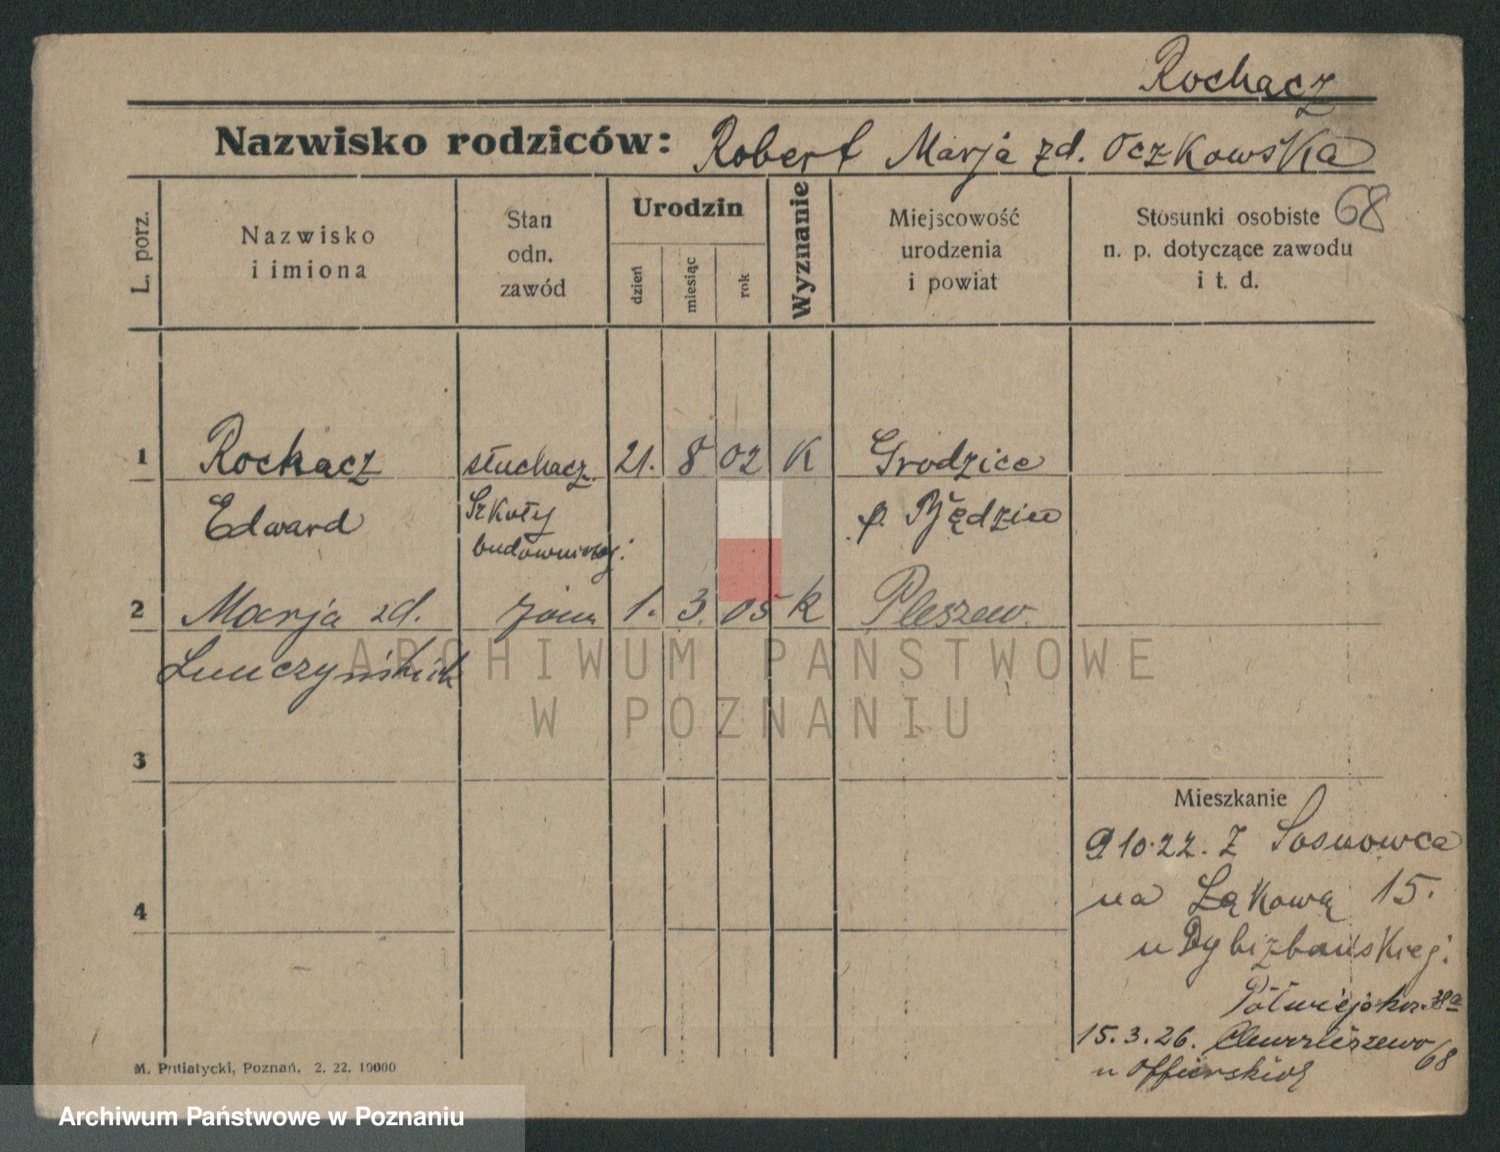 Rochacz
Nazwisko rodziców: Robert Marja zd. Oczkowska
L. porz.
Nazwisko i imiona
Stan odn. zawód
Urodzin
dzień miesiąc rok
Wyznanie
Miejscowość urodzenia i powiat
Stosunki osobiste 68
n. p. dotyczące zawodu
i t. d.
1 Rochacz słuchacz. 21. 8 02 K Grodzice
Edward Szkoły p. Będzin
budowniczej:
2 Marja zd. żona 1. 3. 05 k Pleszew.
Łuczyńskich
3
4
Mieszkanie
9 10.22. Z Sosnowca
na Łąkową 15.
u Dybizbańskiej:
Półwiejska. 38a
15.3.26. Chwaliszewo 68
u
M. Putiatycki, Poznań. 2. 22. 10000
ARCHIWUM PAŃSTWOWE
W POZNANIU
Archiwum Państwowe w Poznaniu